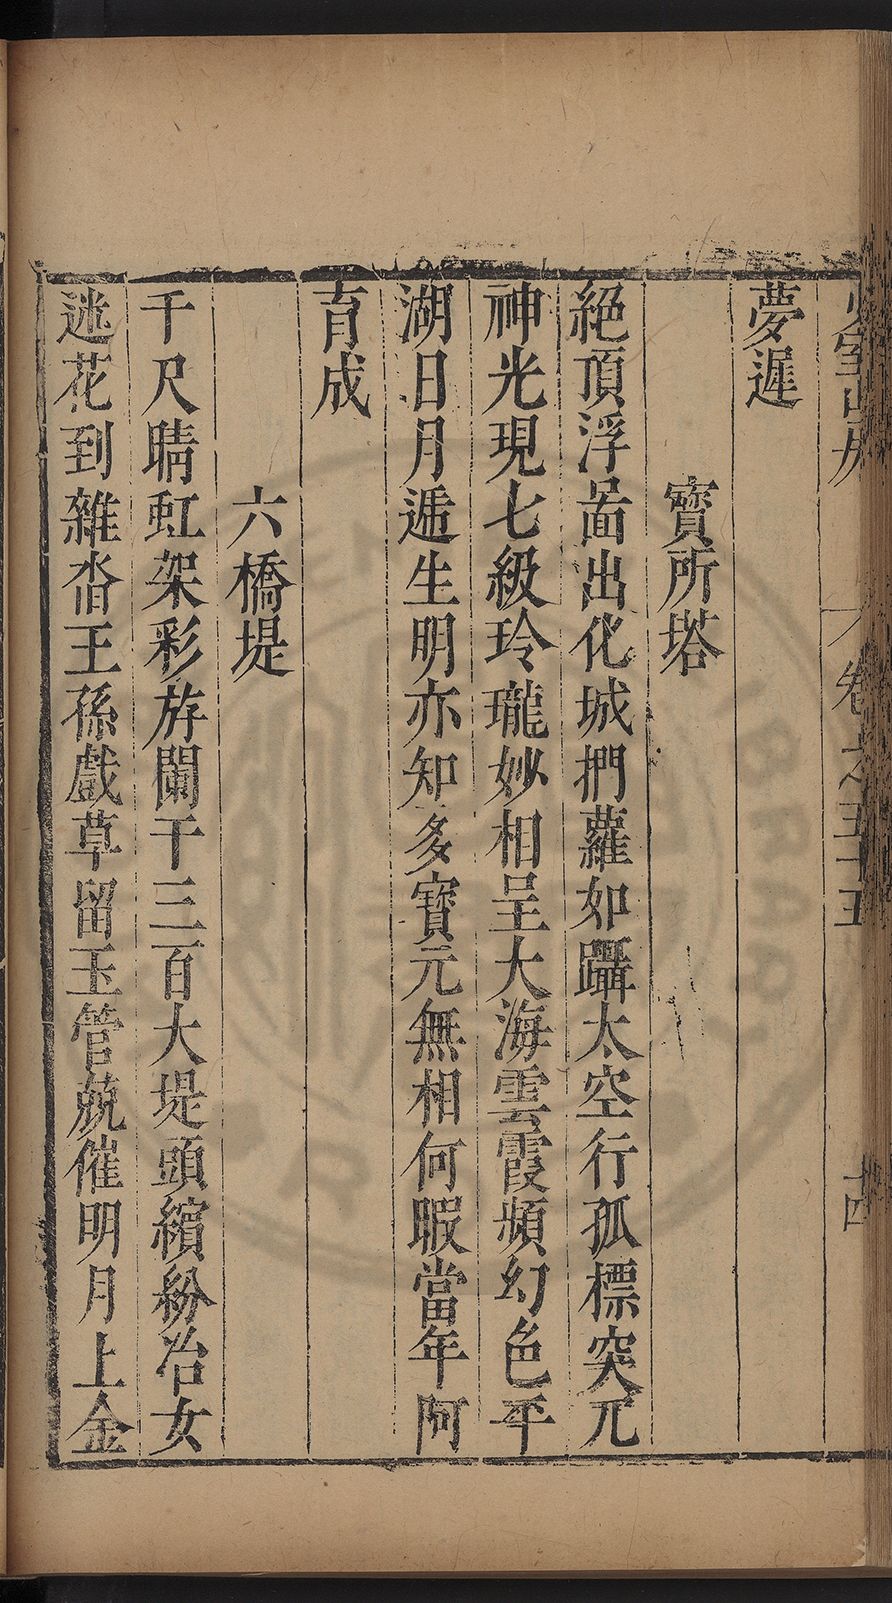 少室山房
卷之五十五
十四
夢遲
寳所塔
絕頂浮啚出化城捫蘿如躡太空行孤標突兀
神光現七級玲瓏妙相呈大海雲霞頻幻色平
湖日月遞生明亦知多寶元無相何暇當年阿
育成
六橋堤
千尺晴虹架彩斿闌干三百大堤頭繽紛冶女
迷花到雜沓王孫戲草留玉管兢催明月上金